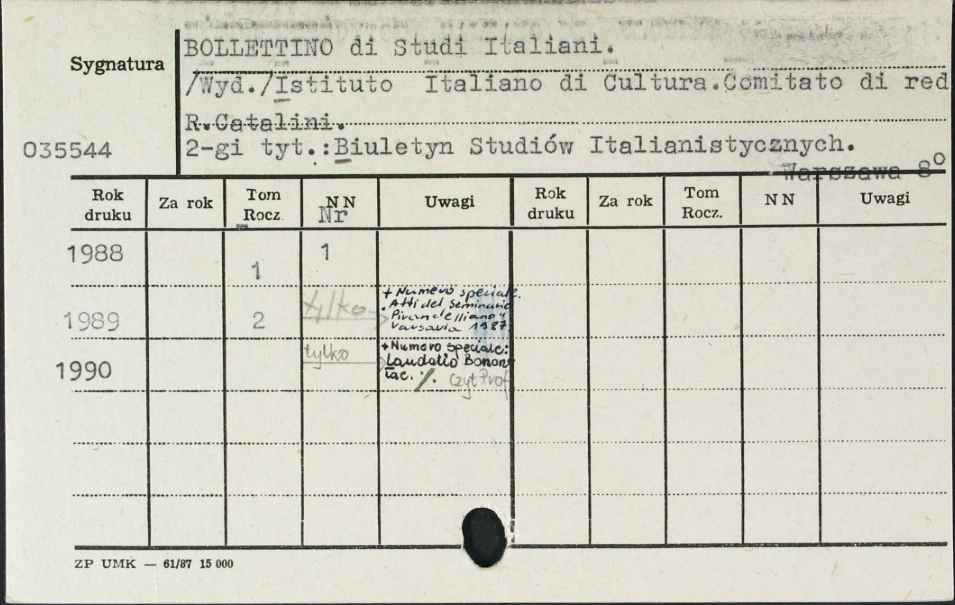 BOLLETTINO di Studi Italiani.
Sygnatura
/Wyd./Istituto Italiano di Cultura.Comitato di red
R.Catalini.
035544
2-gi tyt.:Biuletyn Studiów Italianistycznych.
Warszawa 8°
Rok druku Za rok Tom Rocz. NN Nr Uwagi Rok druku Za rok Tom Rocz. NN Uwagi
1988 1 1
1989 2 tylko + Numero speciale.
Atti del Seminario
Pirandelliano
Varsavia 1987.
1990 tylko + Numero speciale:
Laudatio Bonon
iae. ·/. Czyt Prof
ZP UMK — 61/87 15 000